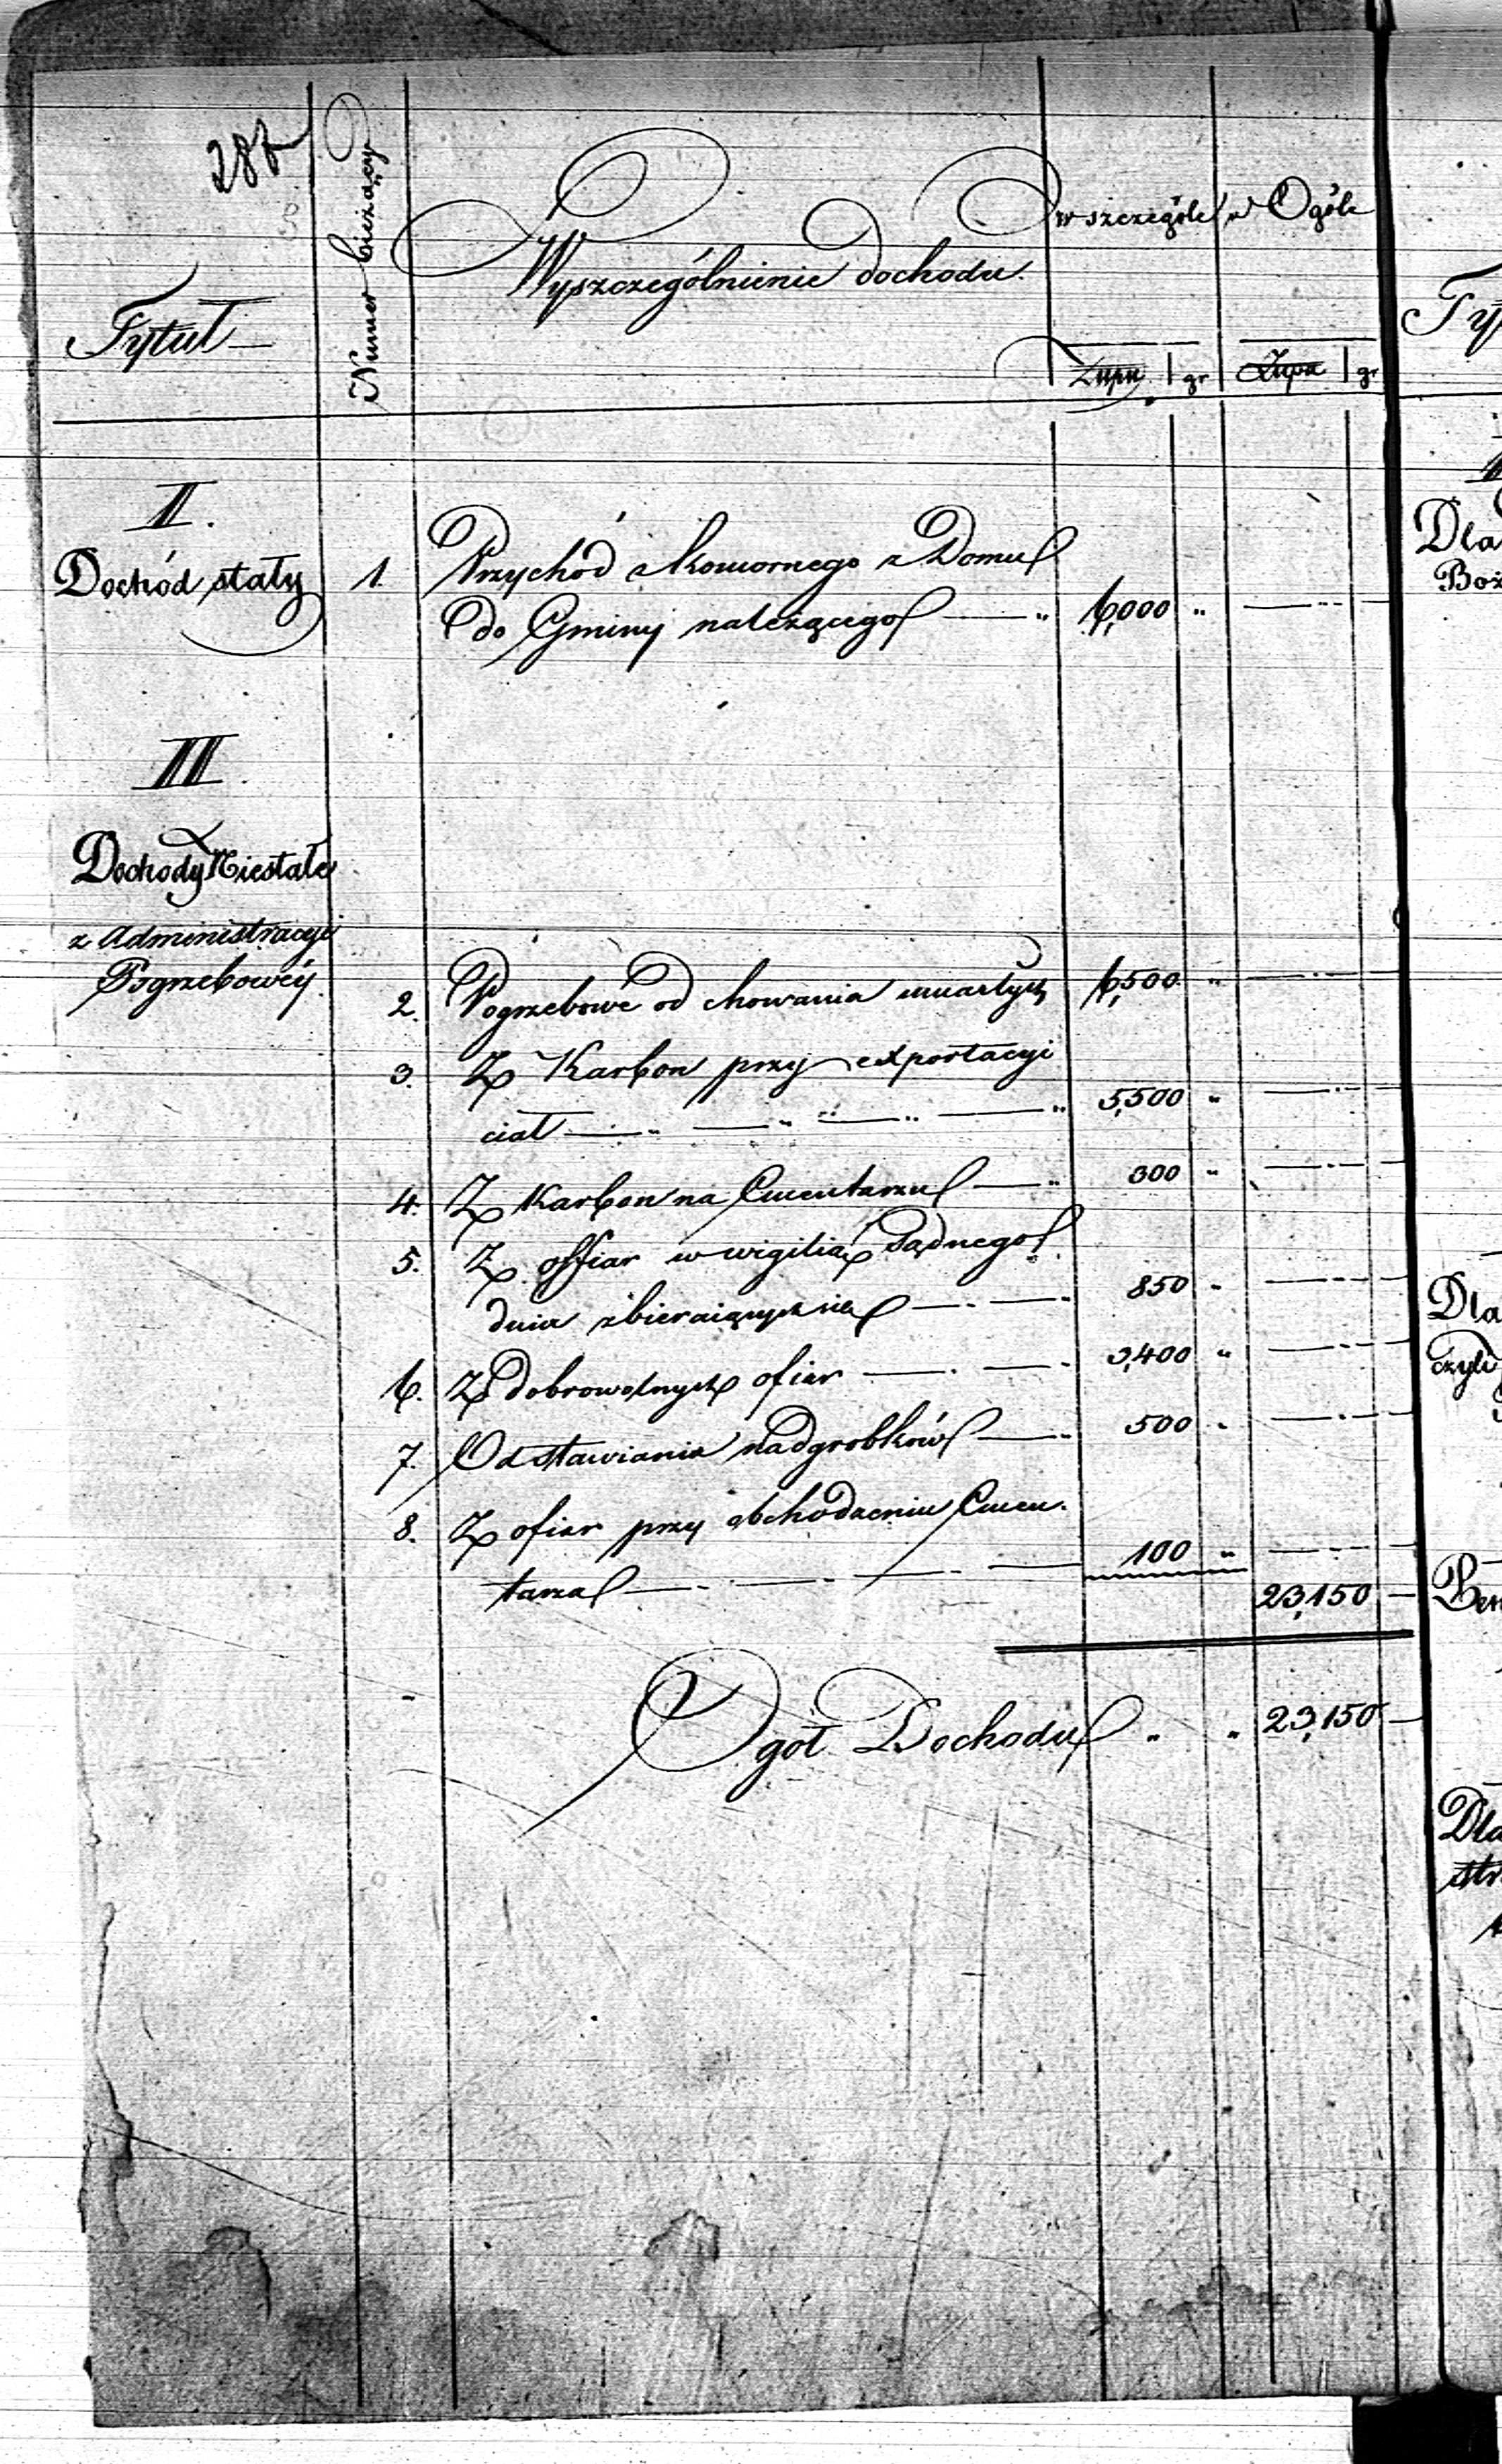 286
Tytuł
Numer bieżący
Wyszczególnienie dochodu.
w szczególe
w Ogóle
gr
gr
I.
Dochód stały
1. Przychód z komornego z Domu
do Gminy należącego — " 6,000 " — " —
II.
Dochody Niestałe
z Administracyi
Pogrzebowéy.
2. Pogrzebowe od chowania umarłych 6,500 " — " —
3. Z Karbon przy exportacyi
ciał — " — " — " — " 5,500 " — " —
4. Z Karbon na Cmentarzu — " 300 " — " —
5. Z offiar w wigilią Sądnego
dnia zbieraiących się — " — 850 " — " —
6. Z dobrowolnych ofiar — " — 3,400 " — " —
7. Od stawiania nadgrobków — " 500 " — " —
8. Z ofiar przy obchodzeniu Cmen-
tarza — " — " — " — 100 " — " —
23,150 —
Ogół Dochodu " " 23,150 —
Ty
Dla
Boż
Dla
czyli
Dla